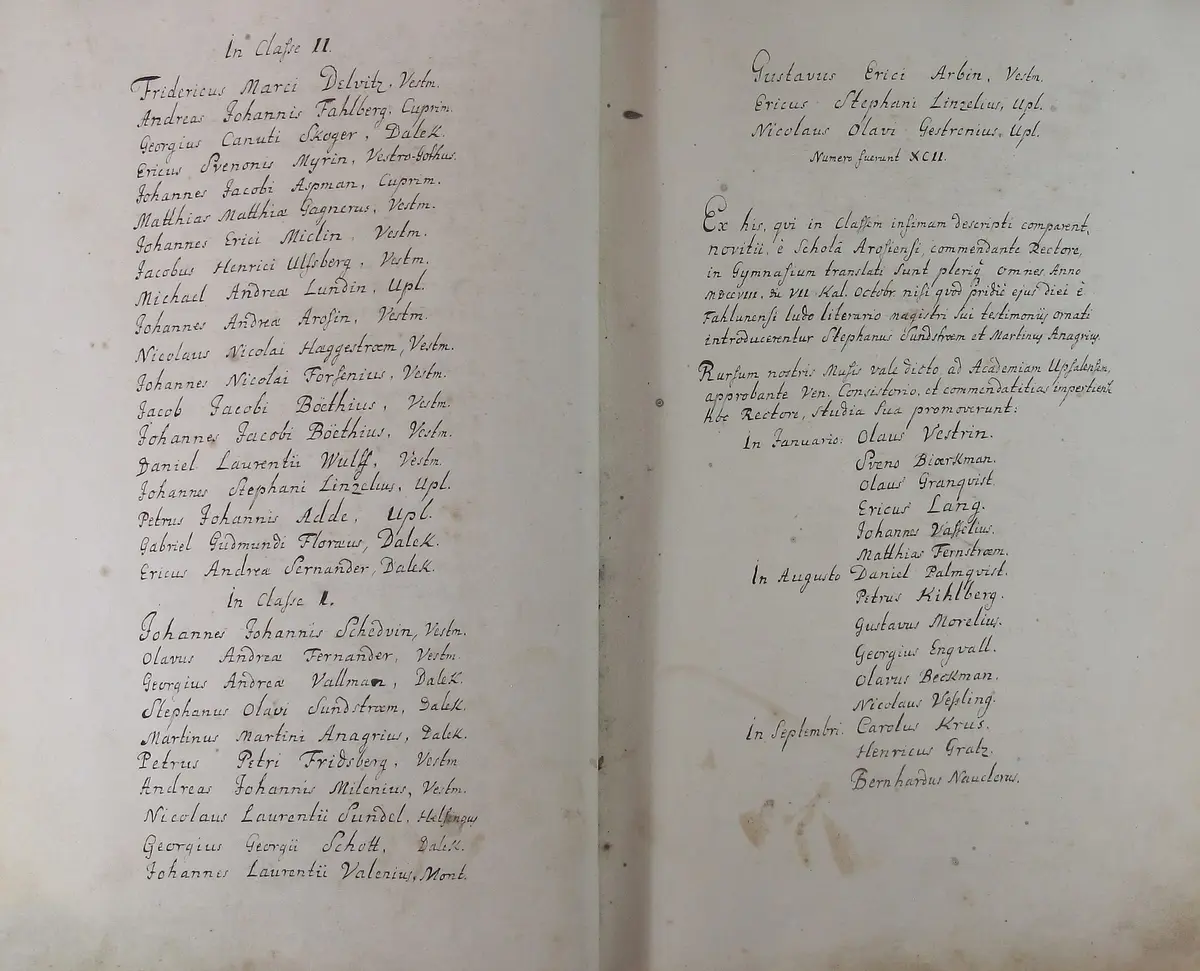 In Classe II.
Fridericus Marci Delvitz, Vestm.
Andreas Johannis Fahlberg, Cuprim.
Georgius Canuti Skoger, Dalek.
Ericus Svenonis Myrin, Vestro-Gothus.
Johannes Jacobi Aspman, Cuprim.
Matthias Matthiæ Gagnerus, Vestm.
Johannes Erici Miclin, Vestm.
Jacobus Henrici Ulfsberg, Vestm.
Michael Andreæ Lundin, Upl.
Johannes Andreæ Arosin, Vestm.
Nicolaus Nicolai Hæggestroem, Vestm.
Johannes Nicolai Forsenius, Vestm.
Jacob Jacobi Böethius, Vestm.
Johannes Jacobi Böethius, Vestm.
Daniel Laurentii Wulff, Vestm.
Johannes Stephani Linzelius, Upl.
Petrus Johannis Adde, Upl.
Gabriel Gudmundi Floræus, Dalek.
Ericus Andreæ Sernander, Dalek.
In Classe I.
Johannes Johannis Schedvin, Vestm.
Olavus Andreæ Fernander, Vestm.
Georgius Andreæ Vallman, Dalek.
Stephanus Olavi Sundstroem, Dalek.
Martinus Martini Anagrius, Dalek.
Petrus Petri Fridsberg, Vestm
Andreas Johannis Milenius, Vestm.
Nicolaus Laurentii Sundel, Helsingus
Georgius Georgii Schott, Dalek.
Johannes Laurentii Valenius, Mont.
Gustavus Erici Arbin, Vestm.
Ericus Stephani Linzelius, Upl.
Nicolaus Olavi Gestrenius, Upl.
Numero fuerunt XCII.
Ex his, qui in Classem infimam descripti comparent,
novitii, è Scholâ Arosiensi, commendante Rectore,
in Gymnasium translati sunt pleriq omnes Anno
MDCCVIII. VII Kal. Octobr. nisi qvod pridiè ejus diei è
Fahlunensi ludo literario magistri sui testimoniis ornati
introducerentur Stephanus Sundstroem et Martinus Anagrius.
Rursum nostris Musis vale dicto ad Academiam Upsalensem,
approbante Ven. Consistorio, et commendatitias impertiente
hoc Rectore, studia sua promoverunt:
In Januario: Olaus Vestrin.
Sveno Bioerkman.
Olaus Granqvist.
Ericus Lang.
Johannes Vasselius.
Matthias Fernstroem.
In Augusto Daniel Palmqvist.
Petrus Kihlberg.
Gustavus Morelius.
Georgius Engvall.
Olavus Beckman.
Nicolaus Vessling.
In Septembri: Carolus Krus.
Henricus Gratz.
Bernhardus Nauclerus.